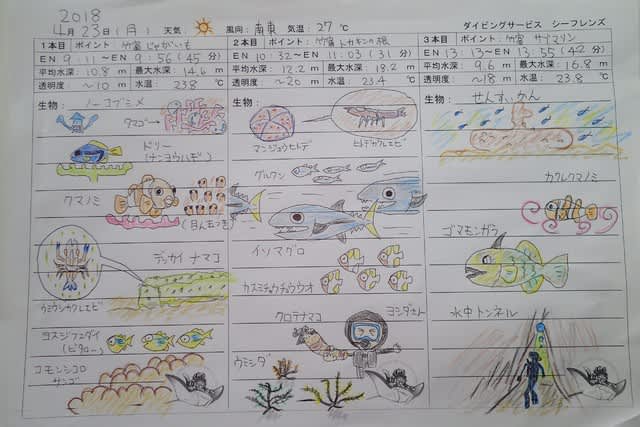 2018
4月23日(月) 天気: 風向: 南東 気温: 27℃ ダイビングサービス シーフレンズ
1本目 ポイント: 竹富じゃがいも
EN 9:11〜EN 9:56 (45分)
平均水深: 10.8 m 最大水深: 14.6 m
透明度: 〜10 m 水温: 23.8 ℃
生物: ノーコブシメ
タマゴ
ドリー
(ナンヨウハギ)
クマノミ
(目ん玉つき)
デッカイ ナマコ
ウミウシカクレエビ
ヨスジフエダイ
コモンシコロ
サンゴ
2本目 ポイント: 竹富 トカキンの根
EN 10:32〜EN 11:03 (31分)
平均水深: 12.2 m 最大水深: 18.2 m
透明度: 〜20 m 水温: 23.4 ℃
生物:
マンジュウヒトデ
ヒトデヤドリエビ
グルクン
イソマグロ
カスミチョウチョウウオ
クロテナマコ
ウミシダ
3本目 ポイント: 竹富 サブマリン
EN 13:13〜EN 13:55 (42分)
平均水深: 9.6 m 最大水深: 16.8 m
透明度: 〜18 m 水温: 23.8 ℃
生物: せんすいかん
カクレクマノミ
ゴマモンガラ
水中トンネル